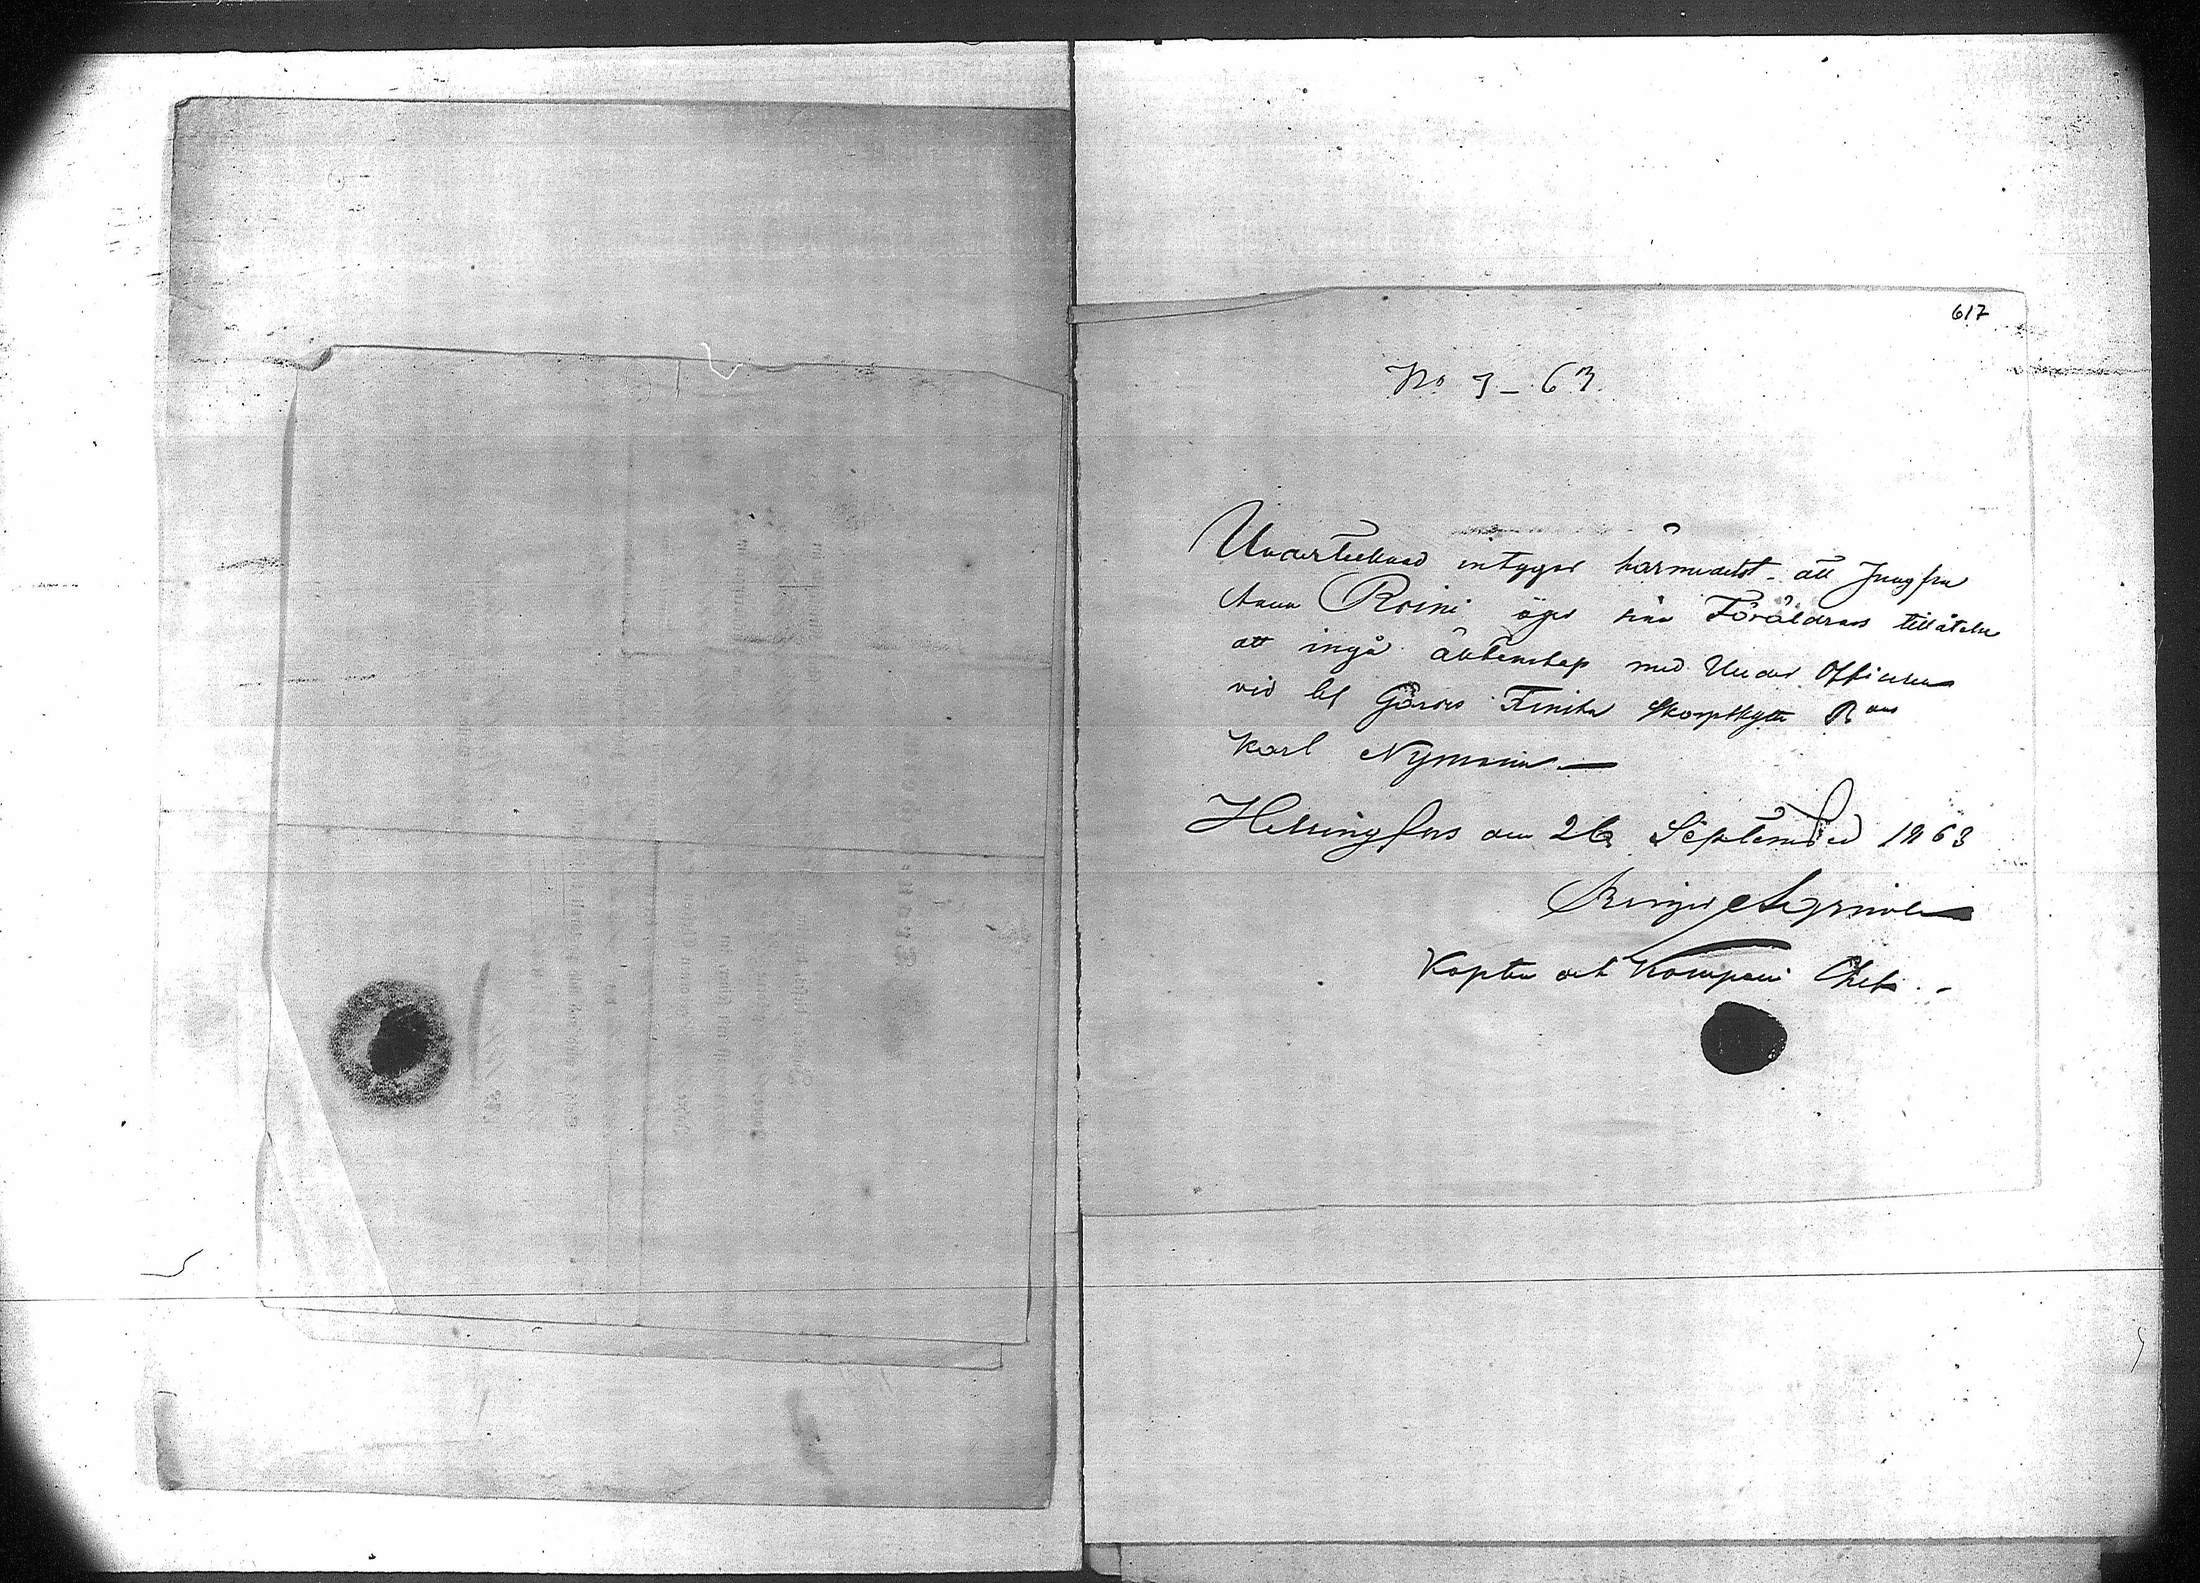 617
No 3 – 63.
Undertecknad intygar härmedelst att Jungfru
Anna Roini äger sina Föräldrars tillåtelse
att ingå äktenskap med Under Officeren
vid Lif Gardes Finska Skarpskytte B:on
Karl Nyman
Helsingfors den 26 September 1863
Kapten och Kompani Chef.